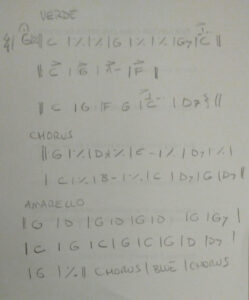 VERDE
|| C | ٪ | ٪ | G | ٪ | ٪ | G7 | C ||
|| C | G | A- | F ||
|| C | G | F G | C | D7 ||
CHORUS
|| G | ٪ | D | ٪ | E- | ٪ | D7 | ٪ |
| C | ٪ | B- | ٪ | C | D7 | G | D7 ||
AMARELLO
|| G | D | G | D | G | D | G | G7 |
| C | G | C | G | C | G | D | D7 |
| G | ٪ || CHORUS | BLUE | CHORUS